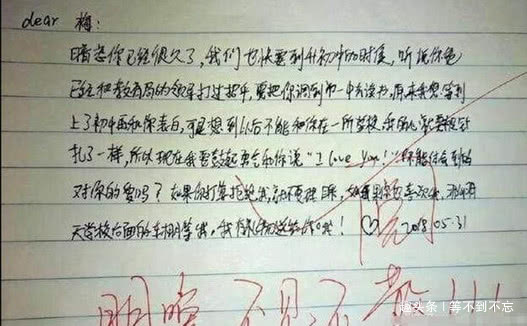 dear 梅:
暗恋你已经很久了,我们也快要到升初中的时候,听说你爸
已经和教育局的领导打过招呼,要把你调到市一中去读书,原来我想等到
上了初中再和你表白,可是想到以后不能和你在一所学校,我的心就要被针
扎了一样,所以现在我要鼓起勇气和你说“I love you!”你能体会到我
对你的爱吗?如果你打算拒绝我,就不要理睬,如果你也喜欢我,那明
天学校后面的车棚等我,我有礼物送给你哦!♡ 2018.05.31
阅
明晚 不见不散!!!
趣头条|等不到不忘